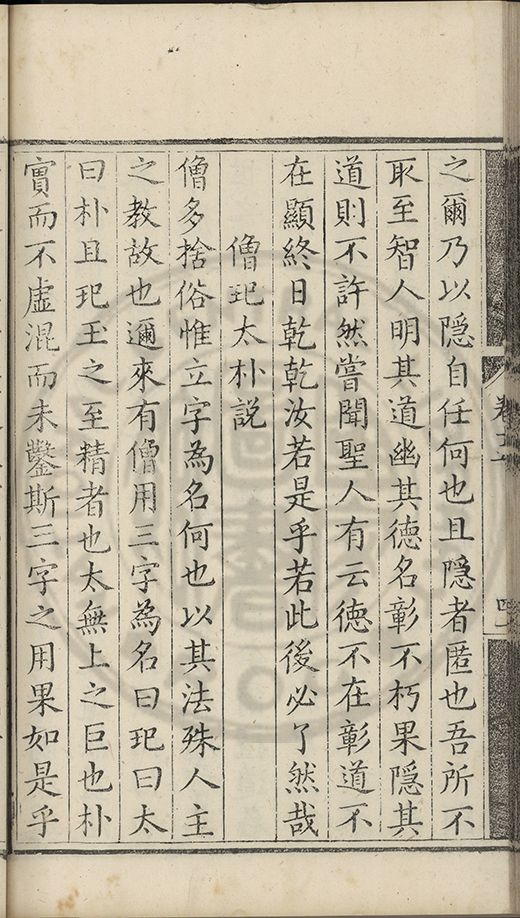 之爾乃以隠自任何也且隠者匿也吾所不
取至智人明其道幽其徳名彰不朽果隠其
道則不許然嘗聞聖人有云徳不在彰道不
在顯終日乾乾汝若是乎若此後必了然哉
僧玘太朴説
僧多捨俗惟立字為名何也以其法殊人主
之教故也邇來有僧用三字為名曰玘曰太
曰朴且玘玉之至精者也太無上之巨也朴
實而不虛混而未鑿斯三字之用果如是乎